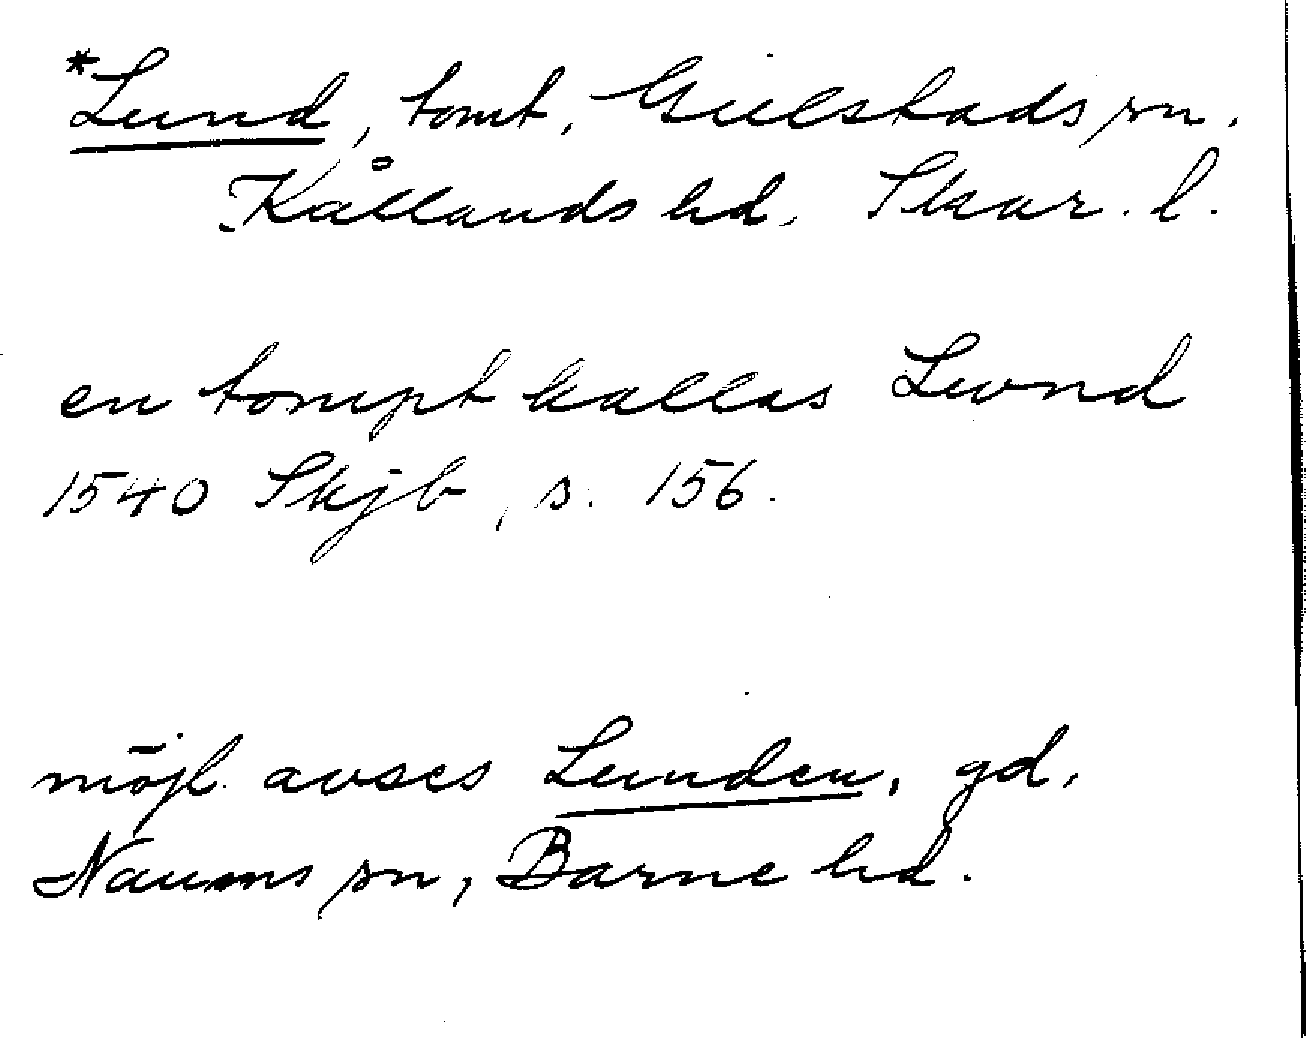 *Lund, tomt, Gillstads sn.
Kållands hd, Skar. l.
en tompt kallas Lvnd
1540 Skjb, s. 156.
möjl. avses Lunden, gd,
Naums sn, Barne hd.